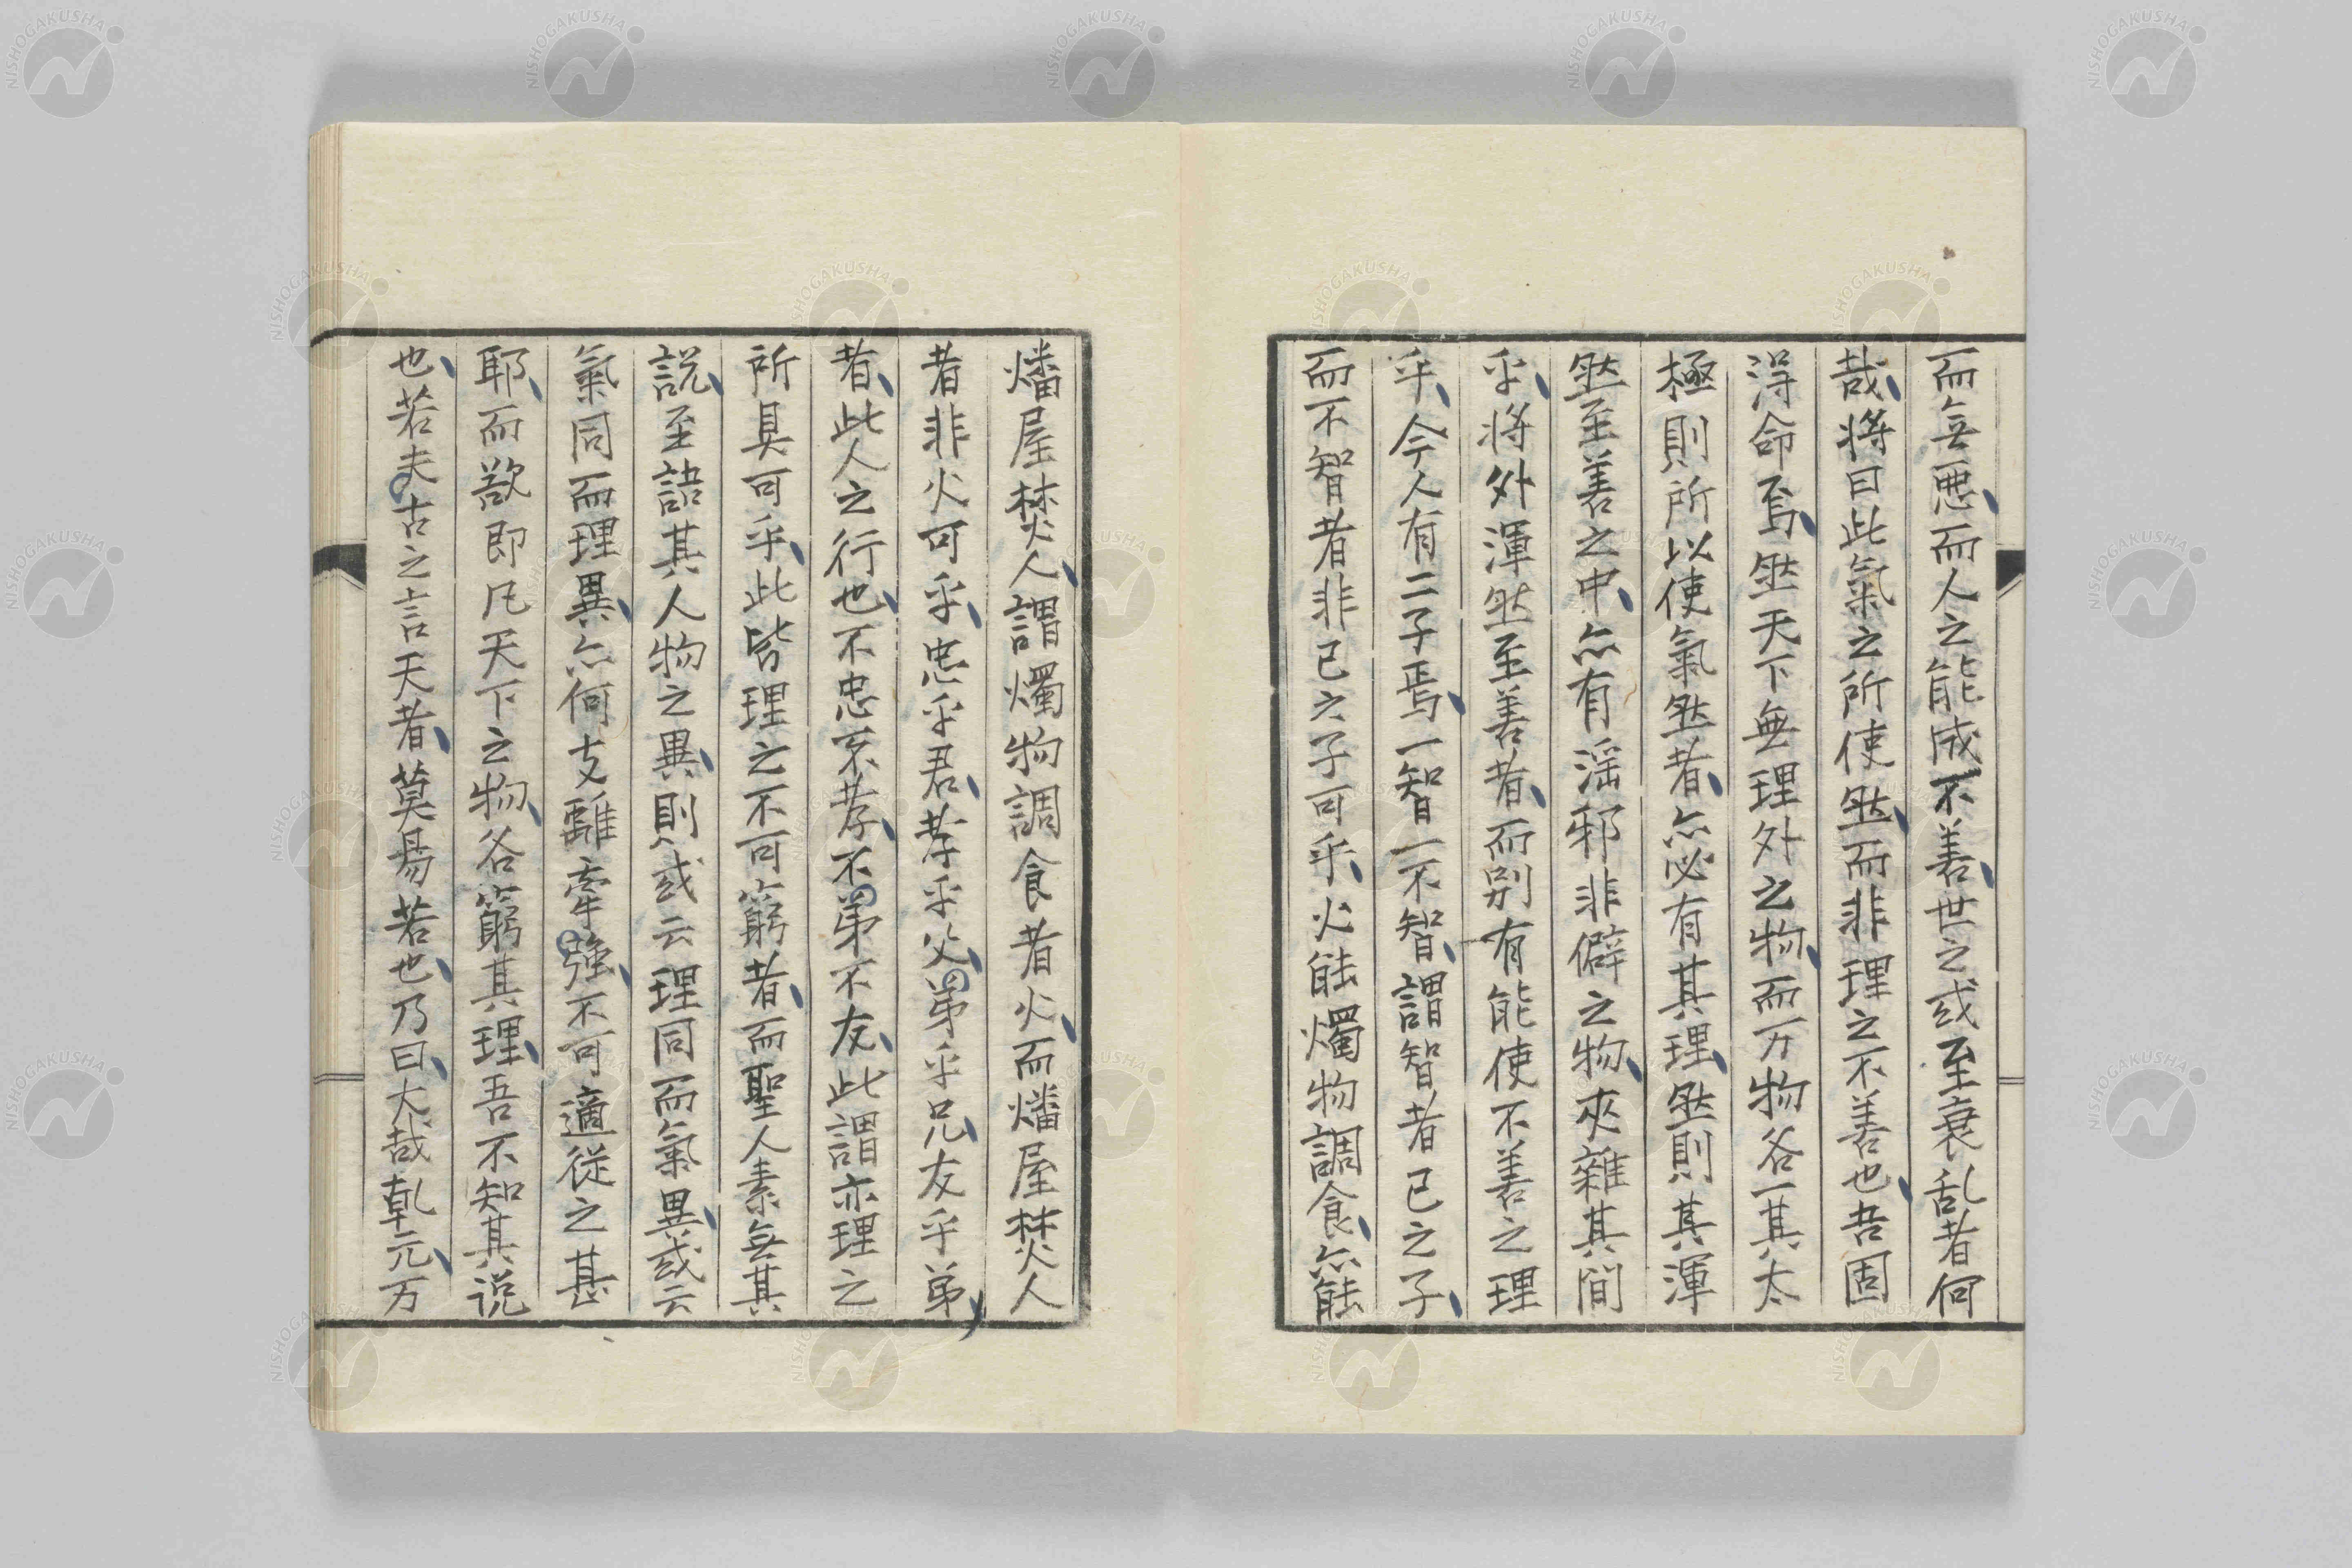 而無悪、而人之能成不善、世之或至衰乱者何
哉、将曰此氣之所使然、而非理之不善也、吾固
淂命焉、然天下無理外之物、而万物各一其太
極則所以使氣然者、亦必有其理、然則其渾
然至善之中、亦有淫邪非僻之物、夾雜其間
乎、将外渾然至善者、而別有能使不善之理
乎、今人有二子焉、一智一不智、謂智者已之子、
而不智者非已之子可乎、火能燭物調食、亦能
燔屋焚人、謂燭物調食者火、而燔屋焚人
者非火可乎、忠乎君、孝乎父、弟乎兄、友乎弟
者、此人之行也、不忠不孝、不弟不友、此謂亦理之
所具可乎、此皆理之不可窮者、而聖人素無其
説、至語其人物之異、則或云理同而氣異、或云
氣同而理異、亦何支離牽強、不可適從之甚
耶、而欲即凡天下之物、各窮其理、吾不知其説
也、若夫古之言天者、莫易若也、乃曰、大哉乾元、万
NISHOGAKUSHA